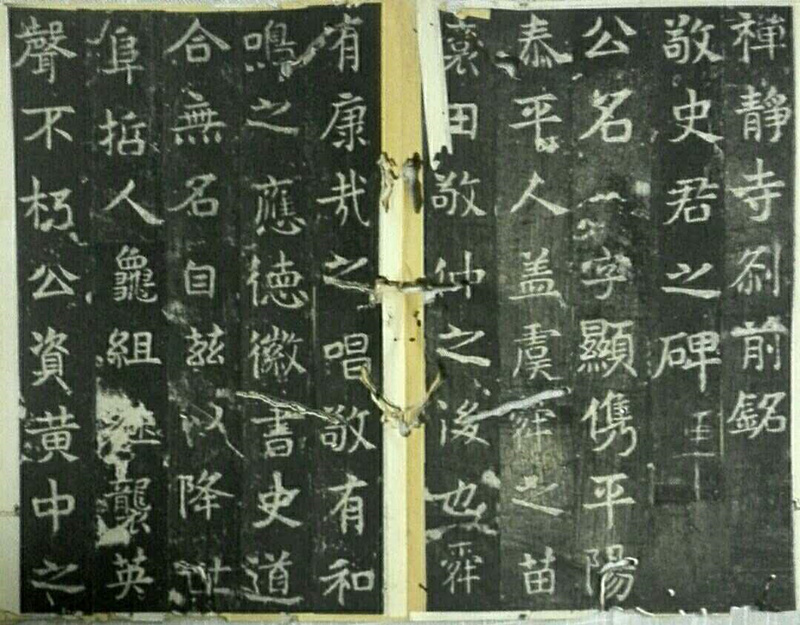 禪静寺刹前銘
敬史君之碑
公名字顯儁平陽
泰平人盖虞舜之苗
裔田敬仲之後也舜
有康哉之唱敬有和
鳴之應德徽書史道
合無名自兹以降世
阜哲人龜組襲英
聲不朽公資黄中之